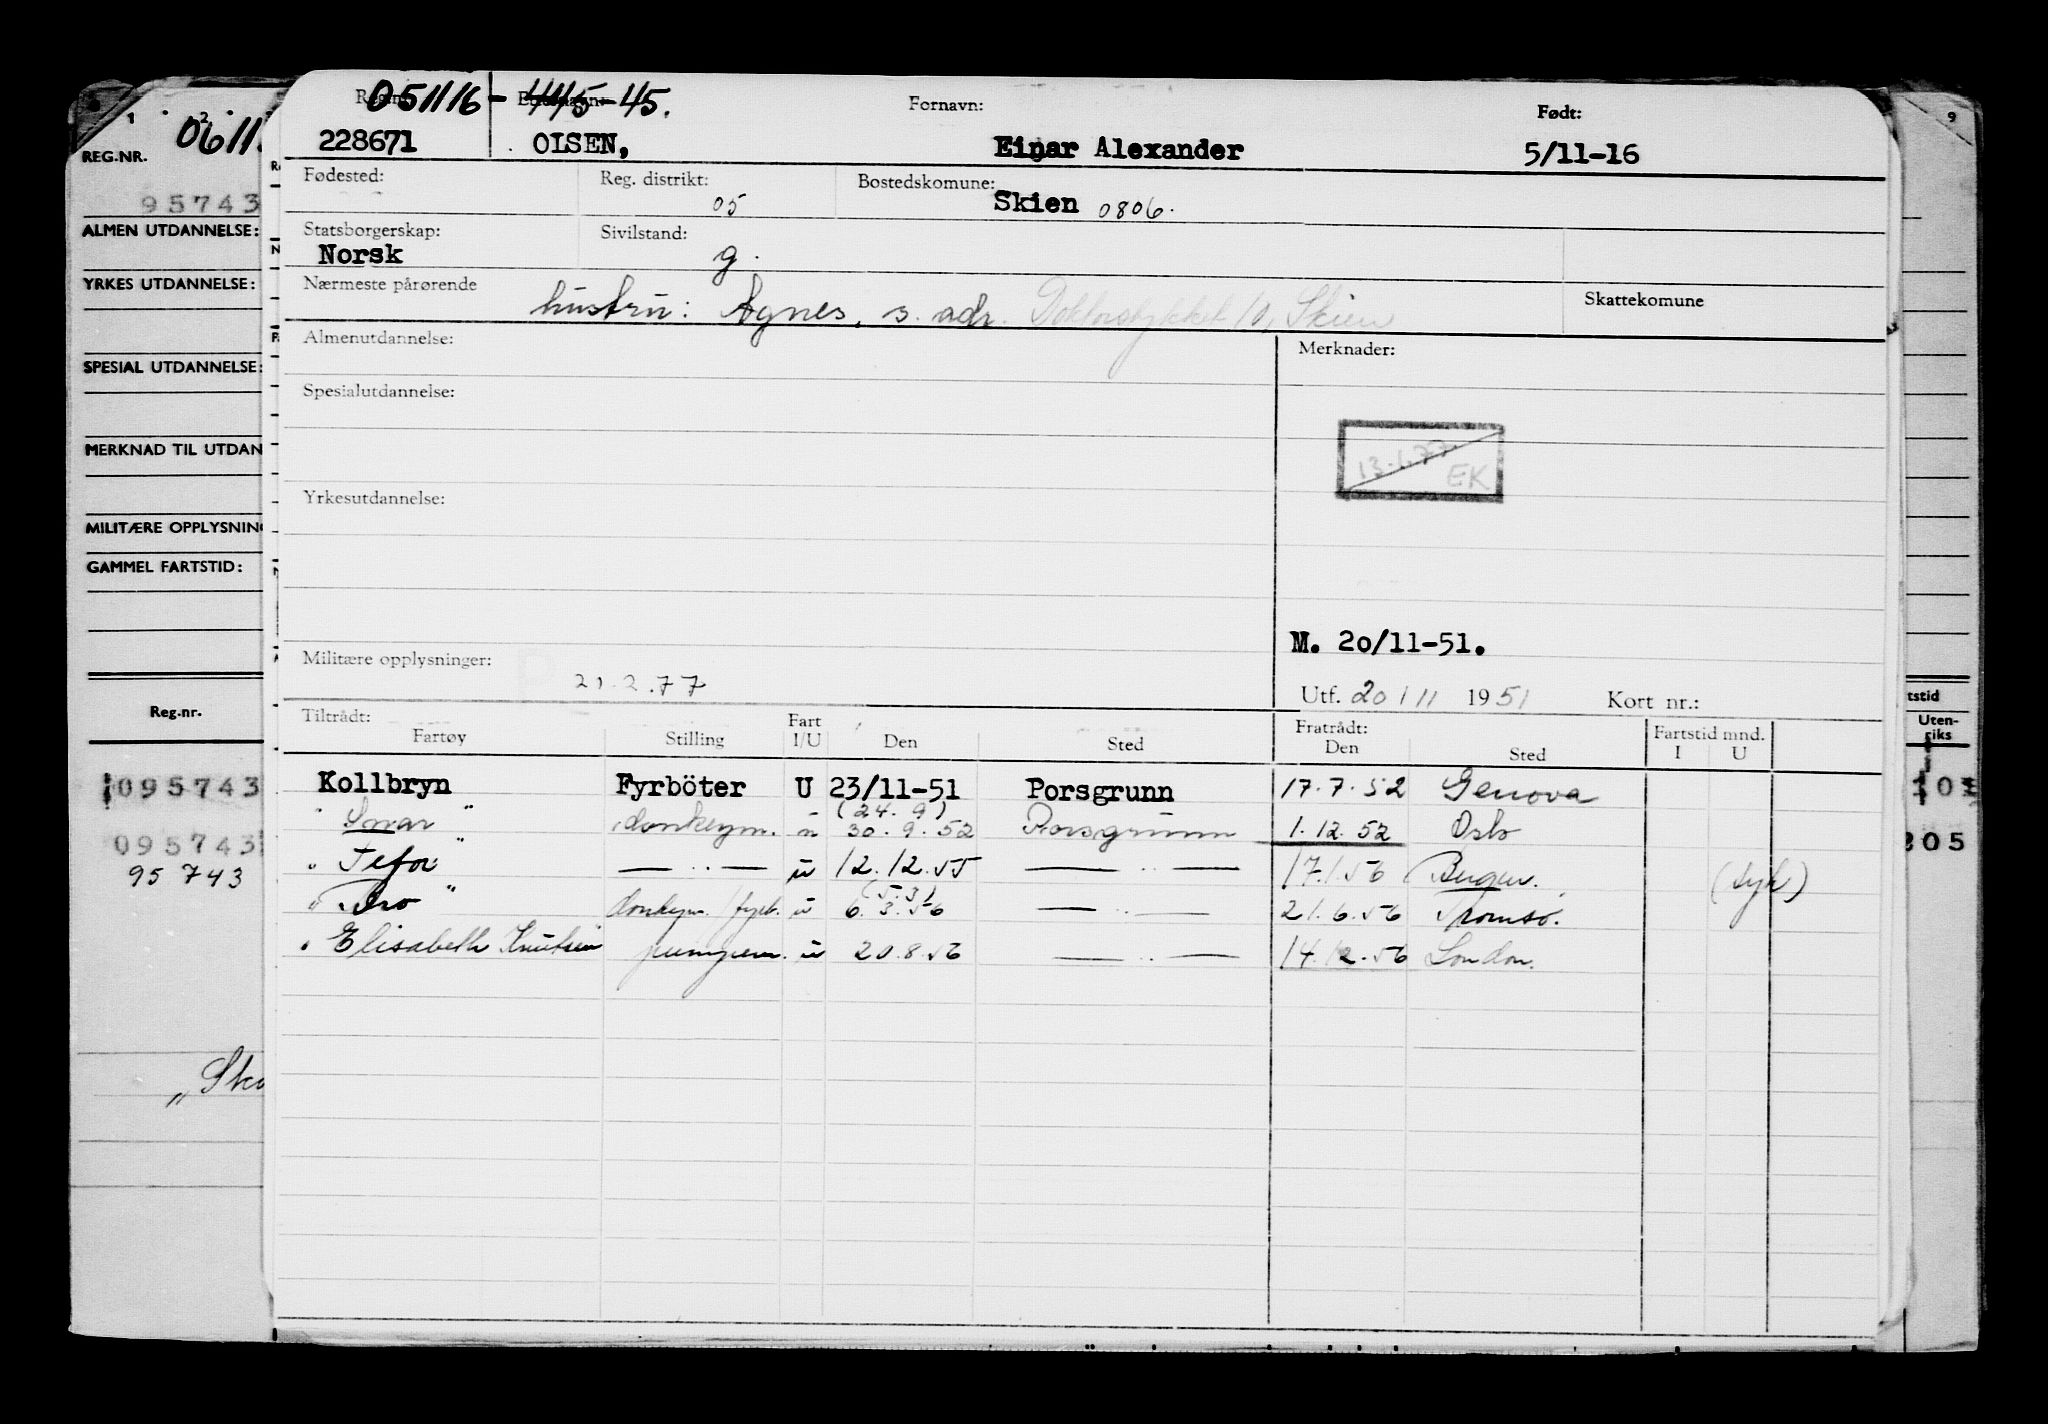 Reg.nr. 051116- 445-45. Etternavn: Fornavn: Født:
228671 OLSEN, Einar Alexander 5/11-16
Fødested: Reg. distrikt: 05 Bostedskomune: Skien 0806.
Statsborgerskap: Norsk Sivilstand: g.
Nærmeste pårørende hustru: Agnes, s. adr. Doktorstykket 10, Skien Skattekomune
Almenutdannelse: Merknader:
Spesialutdannelse:
13.1.77 EK
Yrkesutdannelse:
M. 20/11-51.
Militære opplysninger: 21.2.77
Utf. 20/11 1951 Kort nr.:
Tiltrådt: Fratrådt: Fartstid mnd.
Fartøy Stilling Fart I/U Den Sted Den Sted I U
Kollbryn Fyrböter U 23/11-51 Porsgrunn 17.7.52 Genova
(24.9)
" Snar " donkeym. u 30.9.52 Porsgrunn 1.12.52 Oslo
" Tefor " — .. — u 12.12.55 — .. — 17.1.56 Bergen. (syk)
(5.3)
" Bro " donkeym./fyrb. u 6.3.56 — .. — 21.6.56 Tromsø.
" Elisabeth Knutsen pumpem. u 20.8.56 — .. — 14.12.56 London.
1 2
REG.NR. 0611
95743
ALMEN UTDANNELSE:
YRKES UTDANNELSE:
SPESIAL UTDANNELSE:
MERKNAD TIL UTDAN
MILITÆRE OPPLYSNIN
GAMMEL FARTSTID:
Reg.nr.
095743
095743
95 743
9
tstid
Uten-
riks
103
205